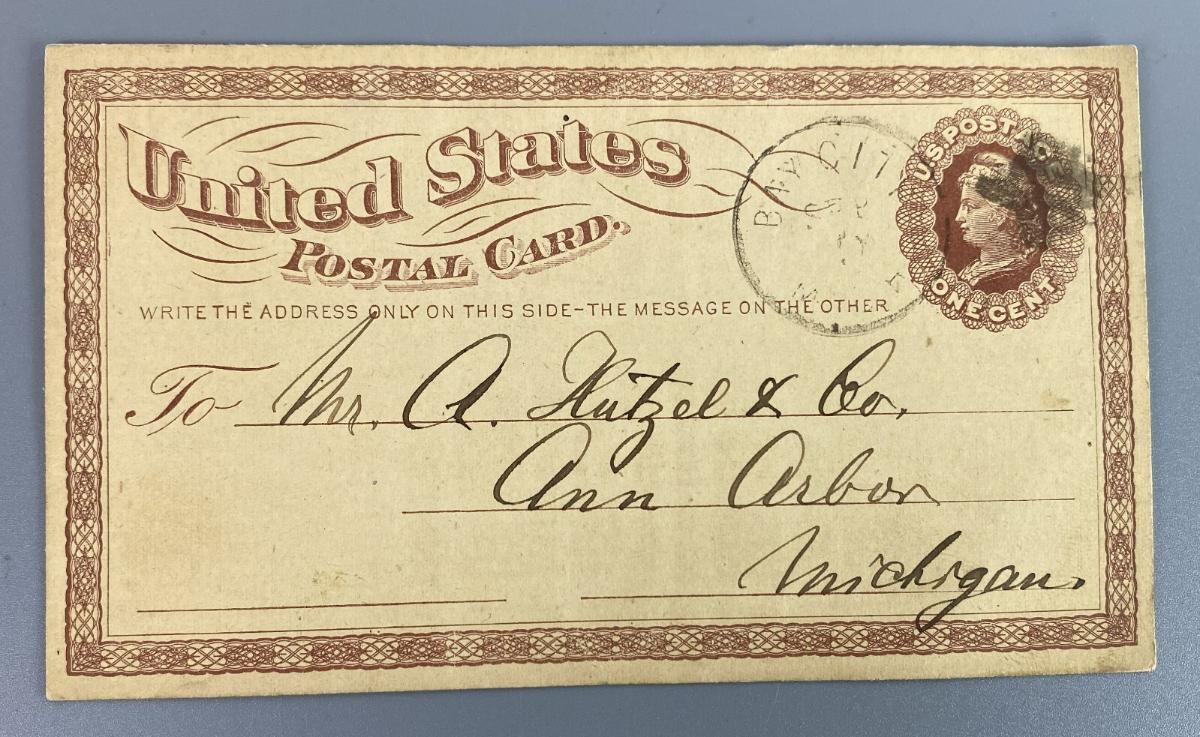 United States
POSTAL CARD.
BAY CITY
U.S. POSTAGE
ONE CENT
WRITE THE ADDRESS ONLY ON THIS SIDE-THE MESSAGE ON THE OTHER
To Mr. A. Hutzel & Co.
Ann Arbor
Michigan.